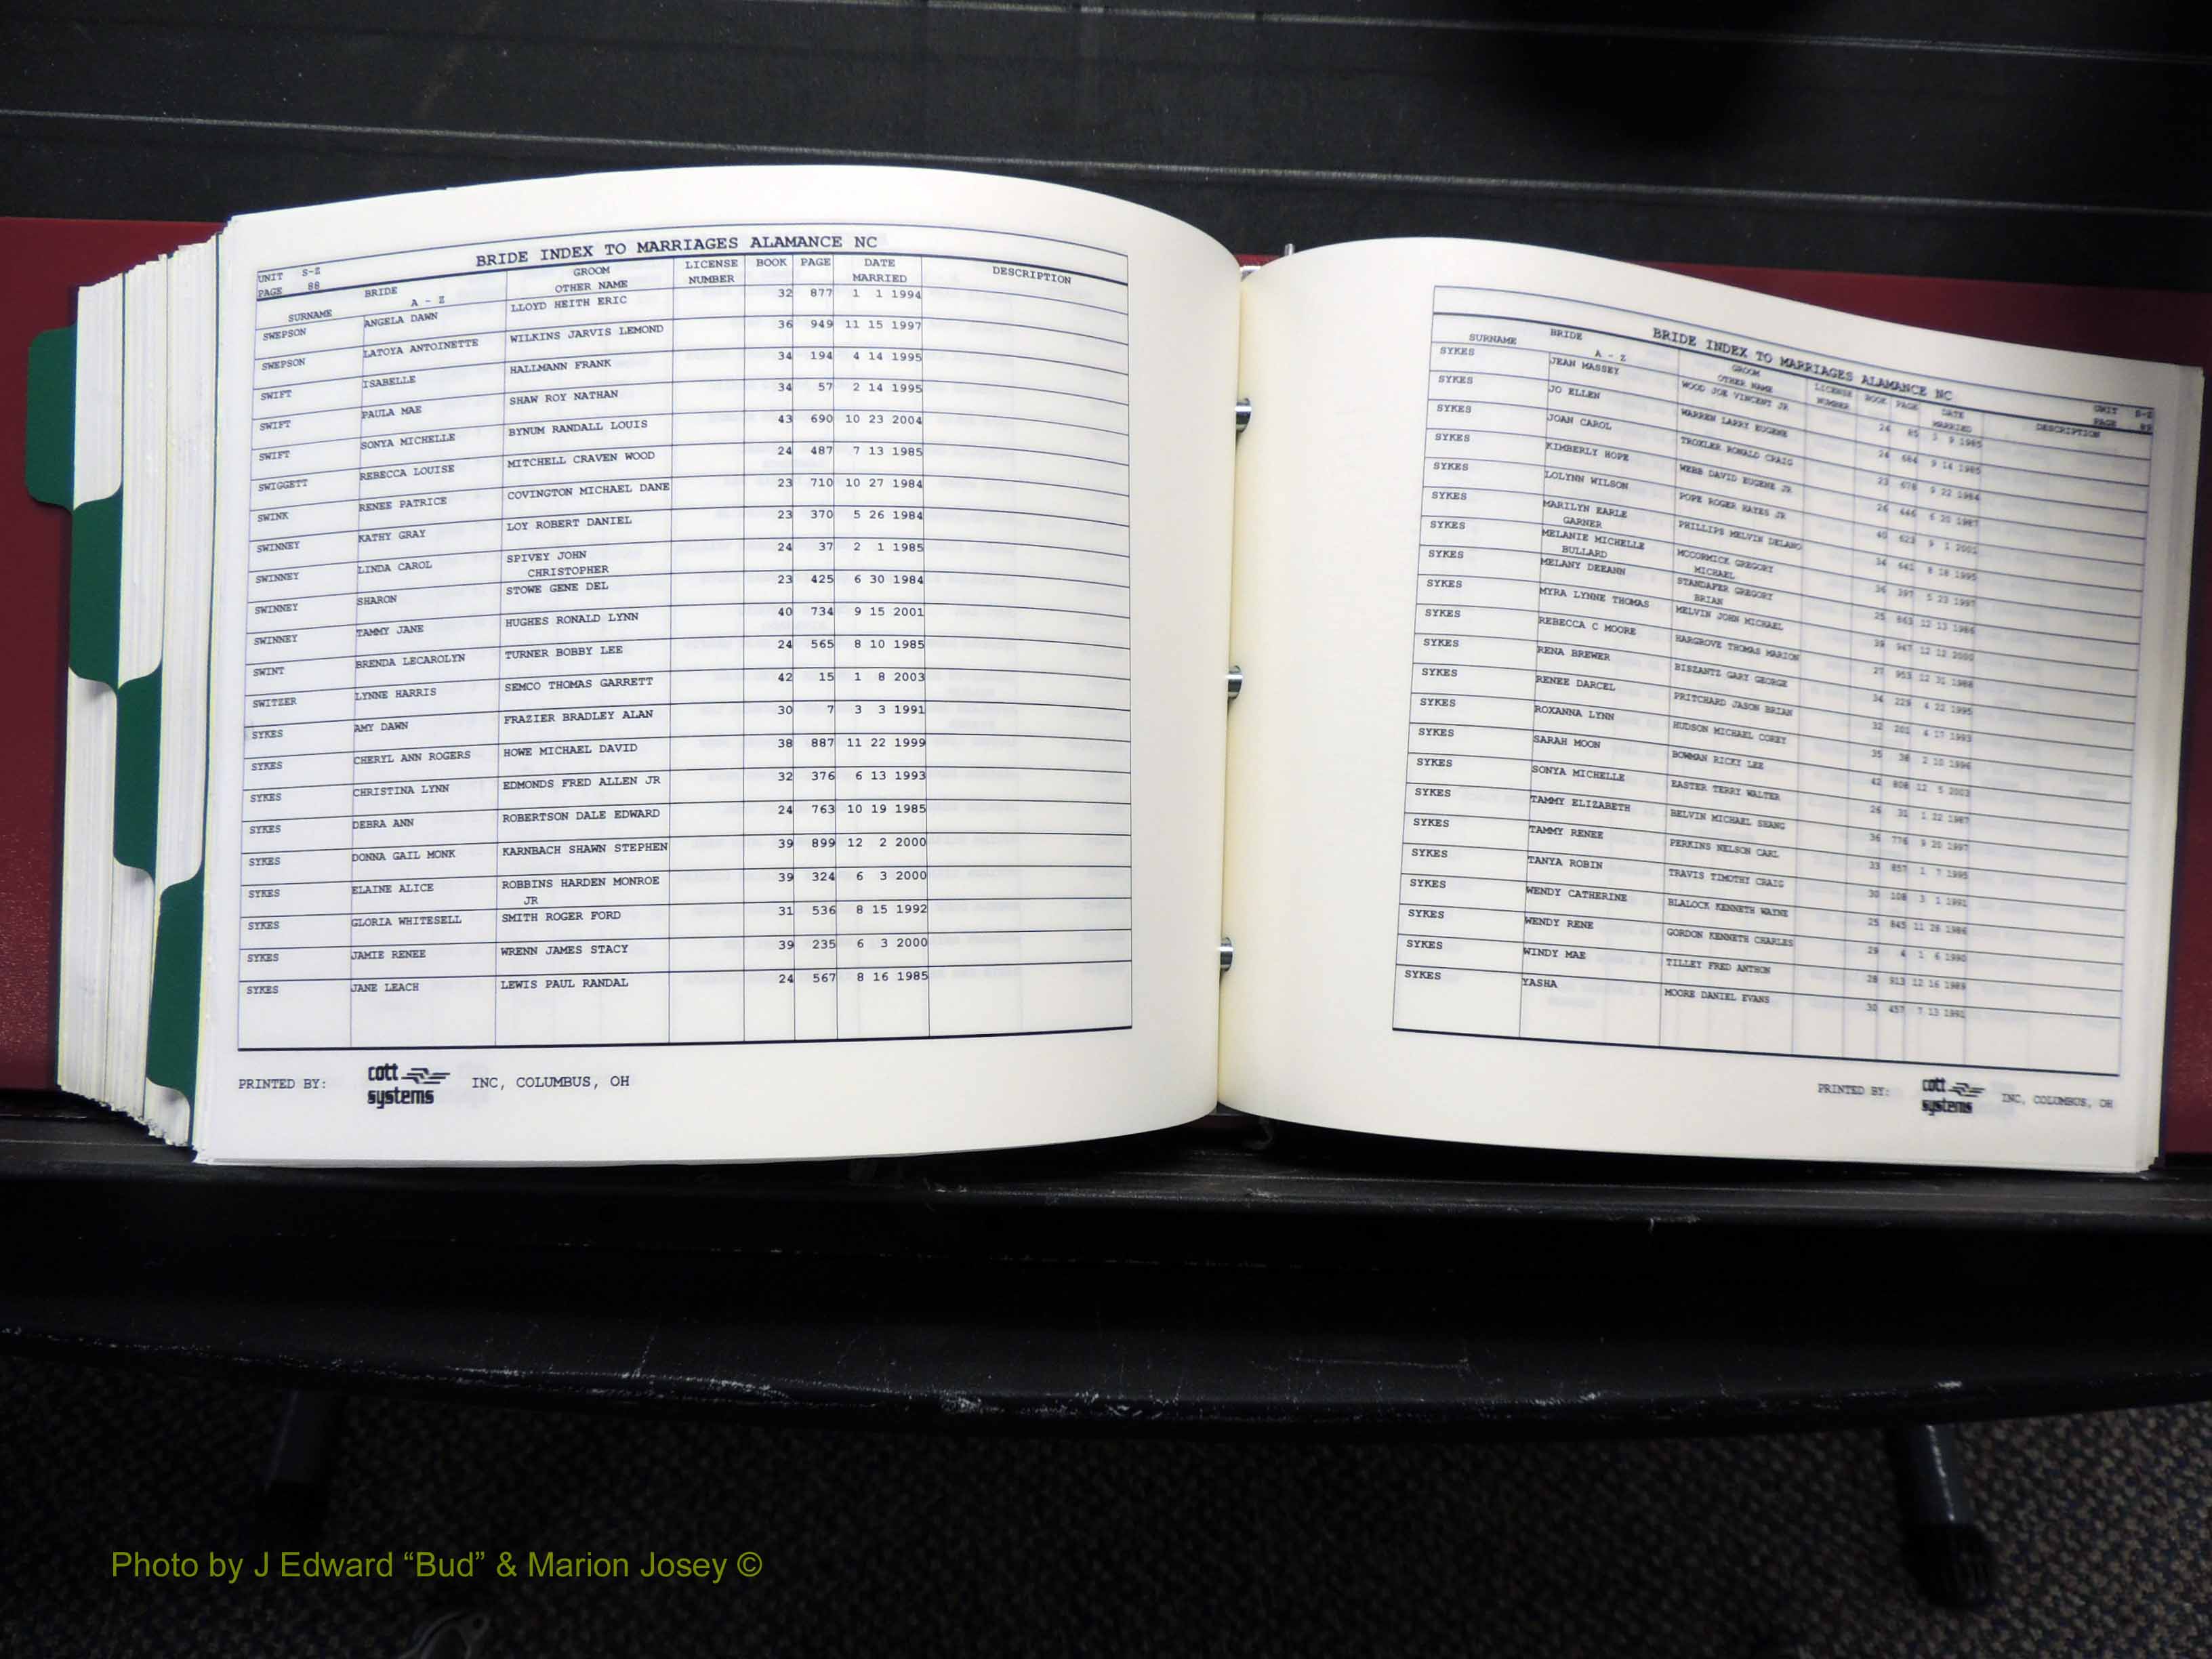 BRIDE INDEX TO MARRIAGES ALAMANCE NC
UNIT S-Z
PAGE 88
SURNAME BRIDE A - Z GROOM OTHER NAME LICENSE NUMBER BOOK PAGE DATE MARRIED DESCRIPTION
SWEPSON ANGELA DAWN LLOYD HEITH ERIC 32 877 1 1 1994
SWEPSON LATOYA ANTOINETTE WILKINS JARVIS LEMOND 36 949 11 15 1997
SWIFT ISABELLE HALLMANN FRANK 34 194 4 14 1995
SWIFT PAULA MAE SHAW ROY NATHAN 34 57 2 14 1995
SWIFT SONYA MICHELLE BYNUM RANDALL LOUIS 43 690 10 23 2004
SWIGGETT REBECCA LOUISE MITCHELL CRAVEN WOOD 24 487 7 13 1985
SWINK RENEE PATRICE COVINGTON MICHAEL DANE 23 710 10 27 1984
SWINNEY KATHY GRAY LOY ROBERT DANIEL 23 370 5 26 1984
SWINNEY LINDA CAROL SPIVEY JOHN CHRISTOPHER 24 37 2 1 1985
SWINNEY SHARON STOWE GENE DEL 23 425 6 30 1984
SWINNEY TAMMY JANE HUGHES RONALD LYNN 40 734 9 15 2001
SWINT BRENDA LECAROLYN TURNER BOBBY LEE 24 565 8 10 1985
SWITZER LYNNE HARRIS SEMCO THOMAS GARRETT 42 15 1 8 2003
SYKES AMY DAWN FRAZIER BRADLEY ALAN 30 7 3 3 1991
SYKES CHERYL ANN ROGERS HOWE MICHAEL DAVID 38 887 11 22 1999
SYKES CHRISTINA LYNN EDMONDS FRED ALLEN JR 32 376 6 13 1993
SYKES DEBRA ANN ROBERTSON DALE EDWARD 24 763 10 19 1985
SYKES DONNA GAIL MONK KARNBACH SHAWN STEPHEN 39 899 12 2 2000
SYKES ELAINE ALICE ROBBINS HARDEN MONROE JR 39 324 6 3 2000
SYKES GLORIA WHITESELL SMITH ROGER FORD 31 536 8 15 1992
SYKES JAMIE RENEE WRENN JAMES STACY 39 235 6 3 2000
SYKES JANE LEACH LEWIS PAUL RANDAL 24 567 8 16 1985
PRINTED BY: cott systems INC, COLUMBUS, OH
BRIDE INDEX TO MARRIAGES ALAMANCE NC
UNIT S-Z
PAGE 89
SURNAME BRIDE A - Z GROOM OTHER NAME LICENSE NUMBER BOOK PAGE DATE MARRIED DESCRIPTION
SYKES JEAN MASSEY WOOD JOE VINCENT JR 24 85 3 9 1985
SYKES JO ELLEN WARREN LARRY EUGENE 24 684 9 14 1985
SYKES JOAN CAROL TROXLER RONALD CRAIG 23 9 22 1984
SYKES KIMBERLY HOPE WEBB DAVID EUGENE JR 26 446 6 20 1987
SYKES LOLYNN WILSON POPE ROGER HAYES JR 40 623 9 1 2001
SYKES MARILYN EARLE GARNER PHILLIPS MELVIN DELANO 34 641 8 18 1995
SYKES MELANIE MICHELLE BULLARD MCCORMICK GREGORY MICHAEL 36 397 5 23 1997
SYKES MELANY DEEANN STANDAFER GREGORY BRIAN 25 863 12 13 1986
SYKES MYRA LYNNE THOMAS MELVIN JOHN MICHAEL 39 947 12 12 2000
SYKES REBECCA C MOORE HARGROVE THOMAS MARION 27 953 12 31 1988
SYKES RENA BREWER BISZANTZ GARY GEORGE 34 229 4 22 1995
SYKES RENEE DARCEL PRITCHARD JASON BRIAN 32 4 17 1993
SYKES ROXANNA LYNN HUDSON MICHAEL COREY 35 2 10 1996
SYKES SARAH MOON BOWMAN RICKY LEE 42 808 12 5 2003
SYKES SONYA MICHELLE EASTER TERRY WALTER 26 31 1 22 1987
SYKES TAMMY ELIZABETH BELVIN MICHAEL SHANG 36 776 9 20 1997
SYKES TAMMY RENEE PERKINS NELSON CARL 33 857 1 7 1995
SYKES TANYA ROBIN TRAVIS TIMOTHY CRAIG 30 108 3 1 1991
SYKES WENDY CATHERINE BLALOCK KENNETH WAYNE 25 845 11 28 1986
SYKES WENDY RENE GORDON KENNETH CHARLES 29 4 1 6 1990
SYKES WINDY MAE TILLEY FRED ANTHON 28 913 12 16 1989
SYKES YASHA MOORE DANIEL EVANS 30 457 7 13 1991
PRINTED BY: cott systems INC, COLUMBUS, OH
Photo by J Edward “Bud” & Marion Josey ©